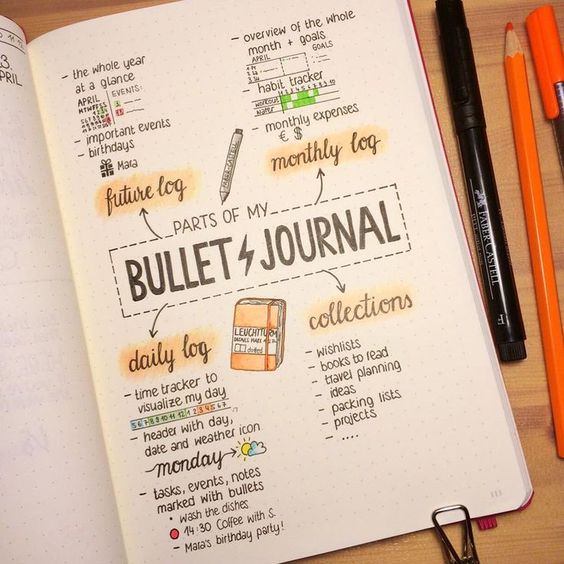 3
APRIL
- the whole year
at a glance
APRIL EVENTS:
MTWTFSS
- important events
- birthdays
Mara
future log
- overview of the whole
month + goals
APRIL GOALS
- habit tracker
workout
water
- monthly expenses
€ $
monthly log
FABER CASTELL
PARTS OF MY
BULLET JOURNAL
daily log
- time tracker to
visualize my day
5 6 7 8 9 10 11 12 1 2 3 4 5 6 7
- header with day,
date and weather icon
monday
- tasks, events, notes
marked with bullets
• wash the dishes
14:30 Coffee with S.
- Mara's birthday party!
LEUCHTTURM
dotted
collections
- wishlists
- books to read
- travel planning
- ideas
- packing lists
- projects
- ....
FABER-CASTELL